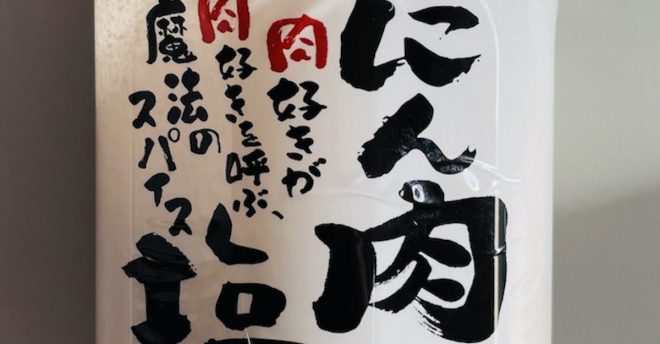 にん肉
塩
肉好きが
肉好きを呼ぶ、
魔法の
スパイス